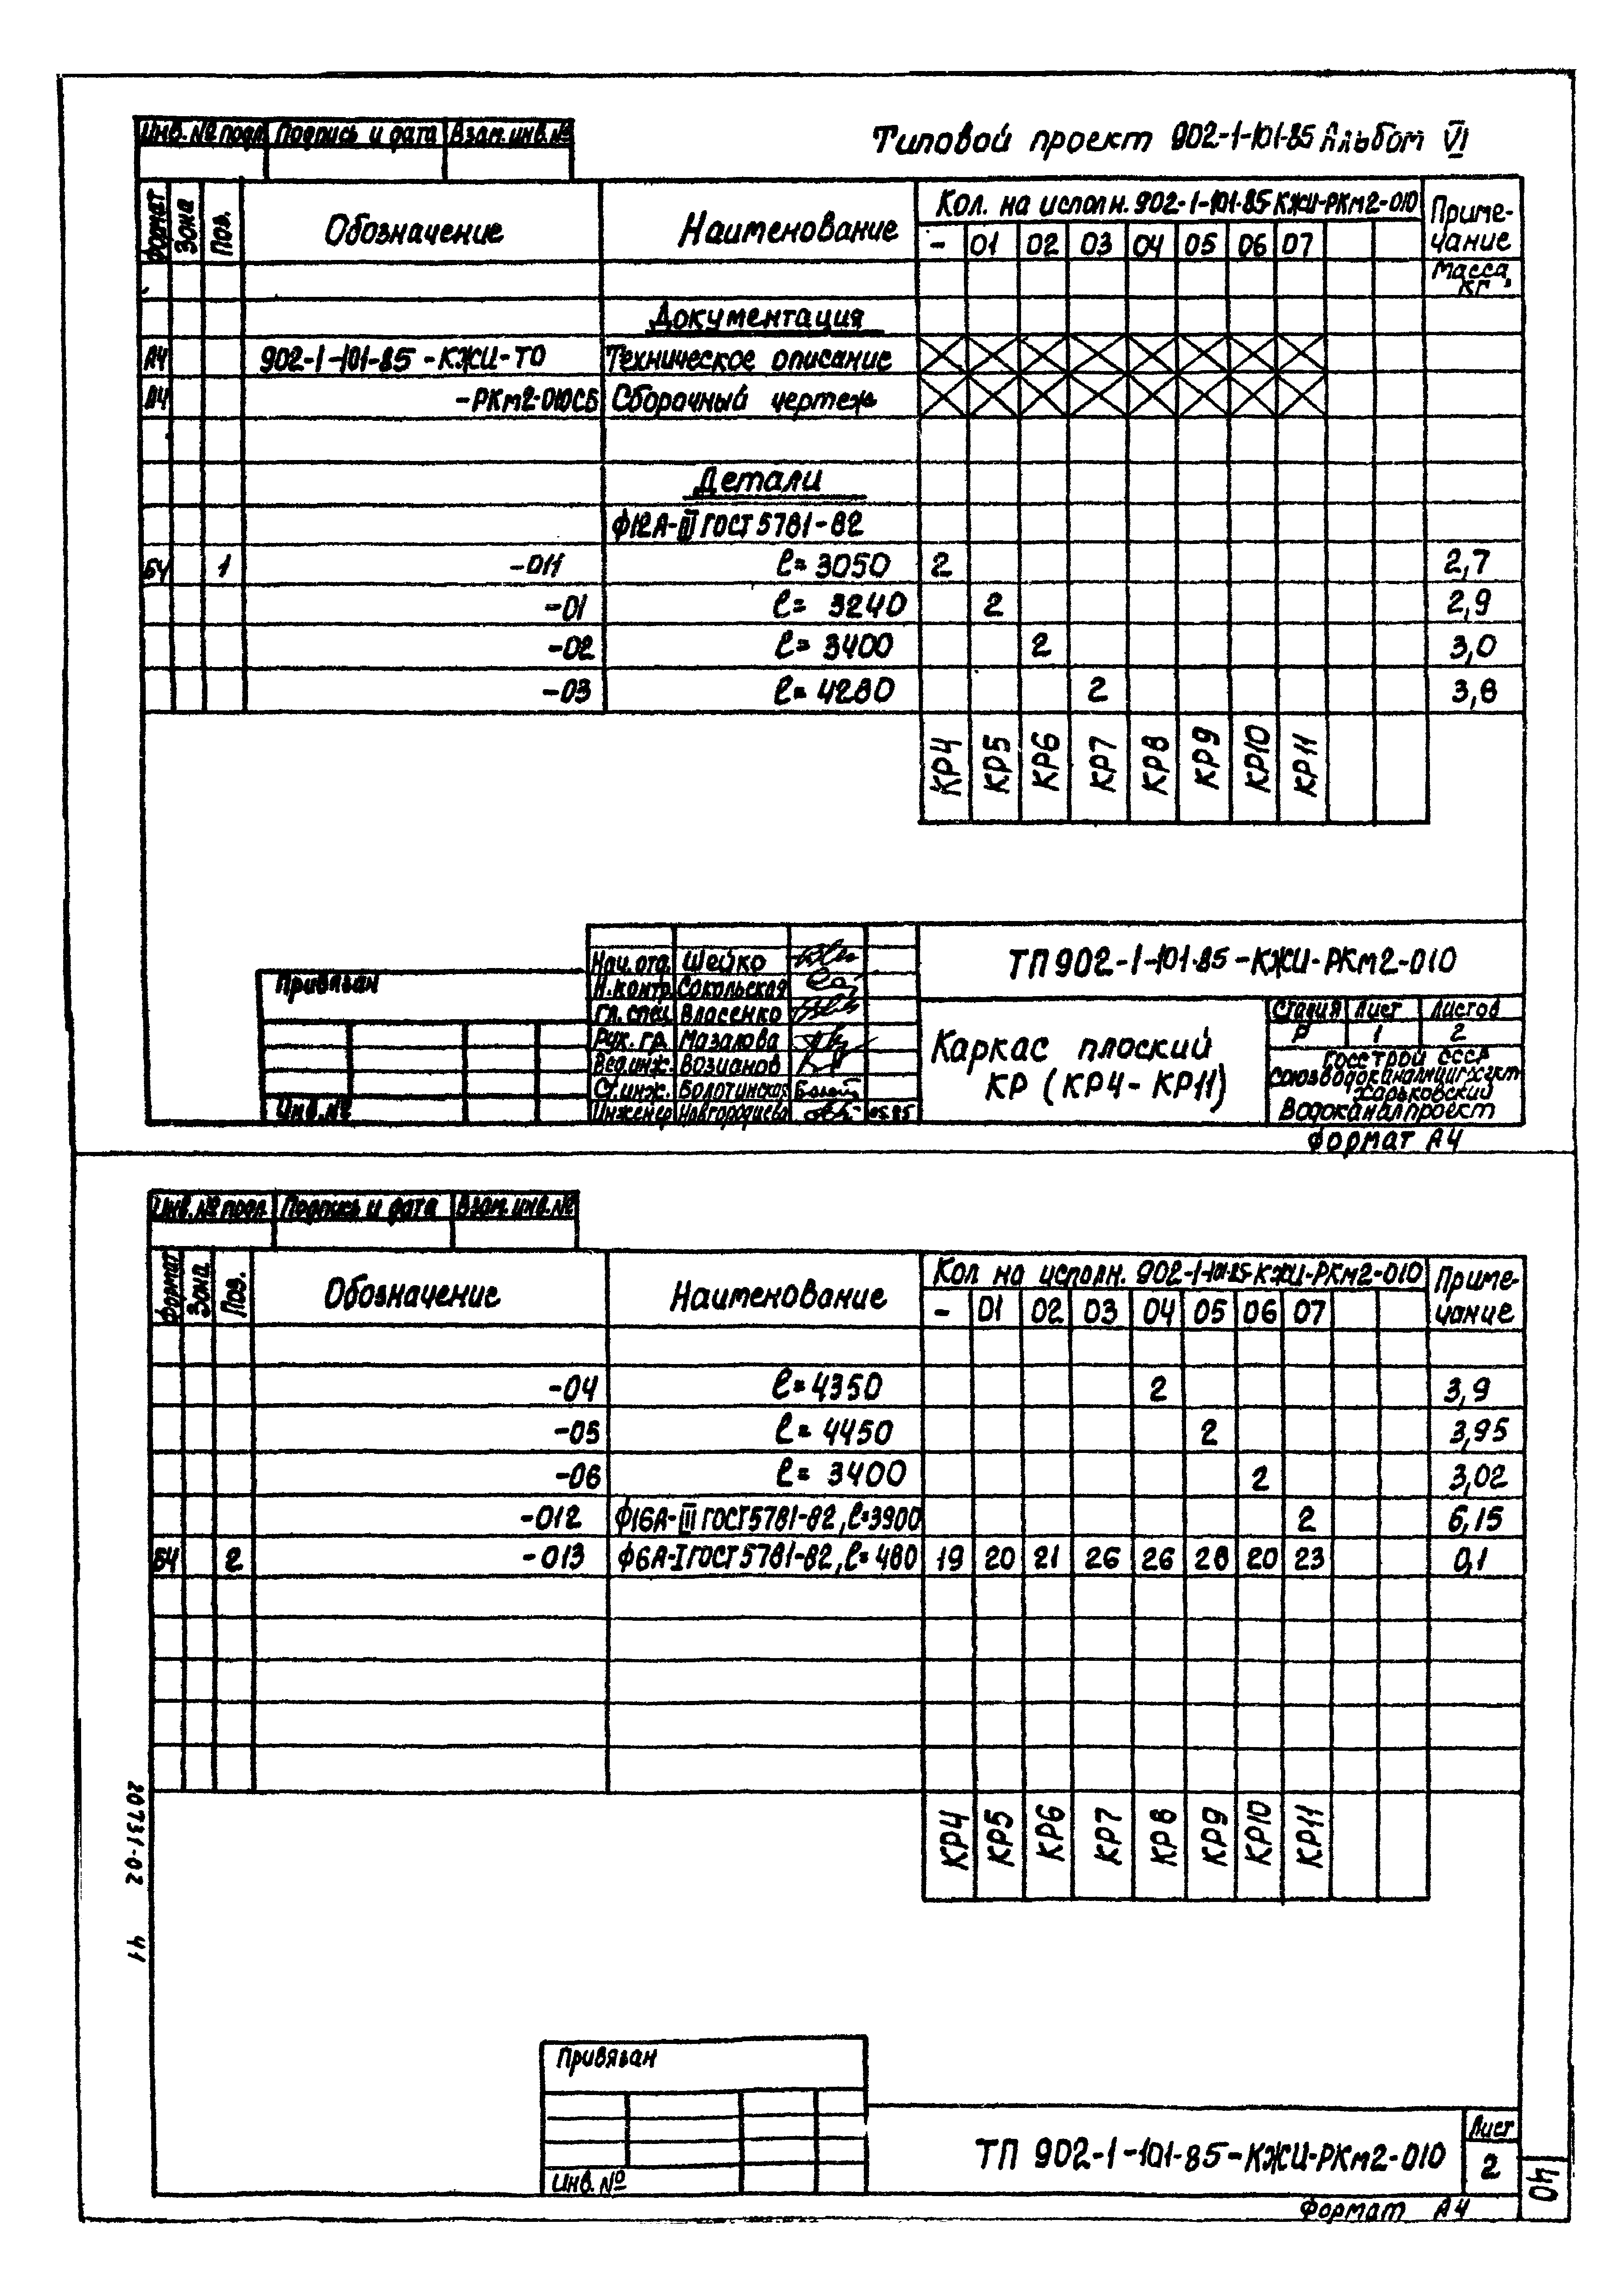 Типовой проект 902-1-101-85 Альбом VI
Инв. № подл. Подпись и дата Взам. инв. №
Формат Зона Поз. Обозначение Наименование Кол. на исполн. 902-1-101-85 КЖИ-РКм2-010 Приме-чание
- 01 02 03 04 05 06 07
Масса, кг
Документация
А4 902-1-101-85-КЖИ-ТО Техническое описание
А4 -РКм2-010СБ Сборочный чертеж
Детали
Ф12А-III ГОСТ 5781-82
Б4 1 -011 ℓ= 3050 2 2,7
-01 ℓ= 3240 2 2,9
-02 ℓ= 3400 2 3,0
-03 ℓ= 4280 2 3,8
КР4 КР5 КР6 КР7 КР8 КР9 КР10 КР11
Привязан
Инв. №
Нач. отд. Шейко
Н. контр. Сокольская
Гл. спец. Власенко
Рук. гр. Мазалова
Вед. инж. Возианов
Ст. инж. Болотинская
Инженер Новгородцева 05.85
ТП 902-1-101-85-КЖИ-РКм2-010
Каркас плоский
КР (КР4-КР11)
Стадия Лист Листов
Р 1 2
Госстрой СССР
Союзводоканалниипроект
Харьковский
Водоканалпроект
Формат А4
Инв. № подл. Подпись и дата Взам. инв. №
Формат Зона Поз. Обозначение Наименование Кол. на исполн. 902-1-101-85-КЖИ-РКм2-010 Приме-чание
- 01 02 03 04 05 06 07
-04 ℓ= 4350 2 3,9
-05 ℓ= 4450 2 3,95
-06 ℓ= 3400 2 3,02
-012 Ф16А-III ГОСТ 5781-82, ℓ=3900 2 6,15
Б4 2 -013 Ф6А-I ГОСТ 5781-82, ℓ= 480 19 20 21 26 26 28 20 23 0,1
КР4 КР5 КР6 КР7 КР8 КР9 КР10 КР11
20731-02 41
Привязан
Инв. №
ТП 902-1-101-85-КЖИ-РКм2-010
Лист
2
40
Формат А4